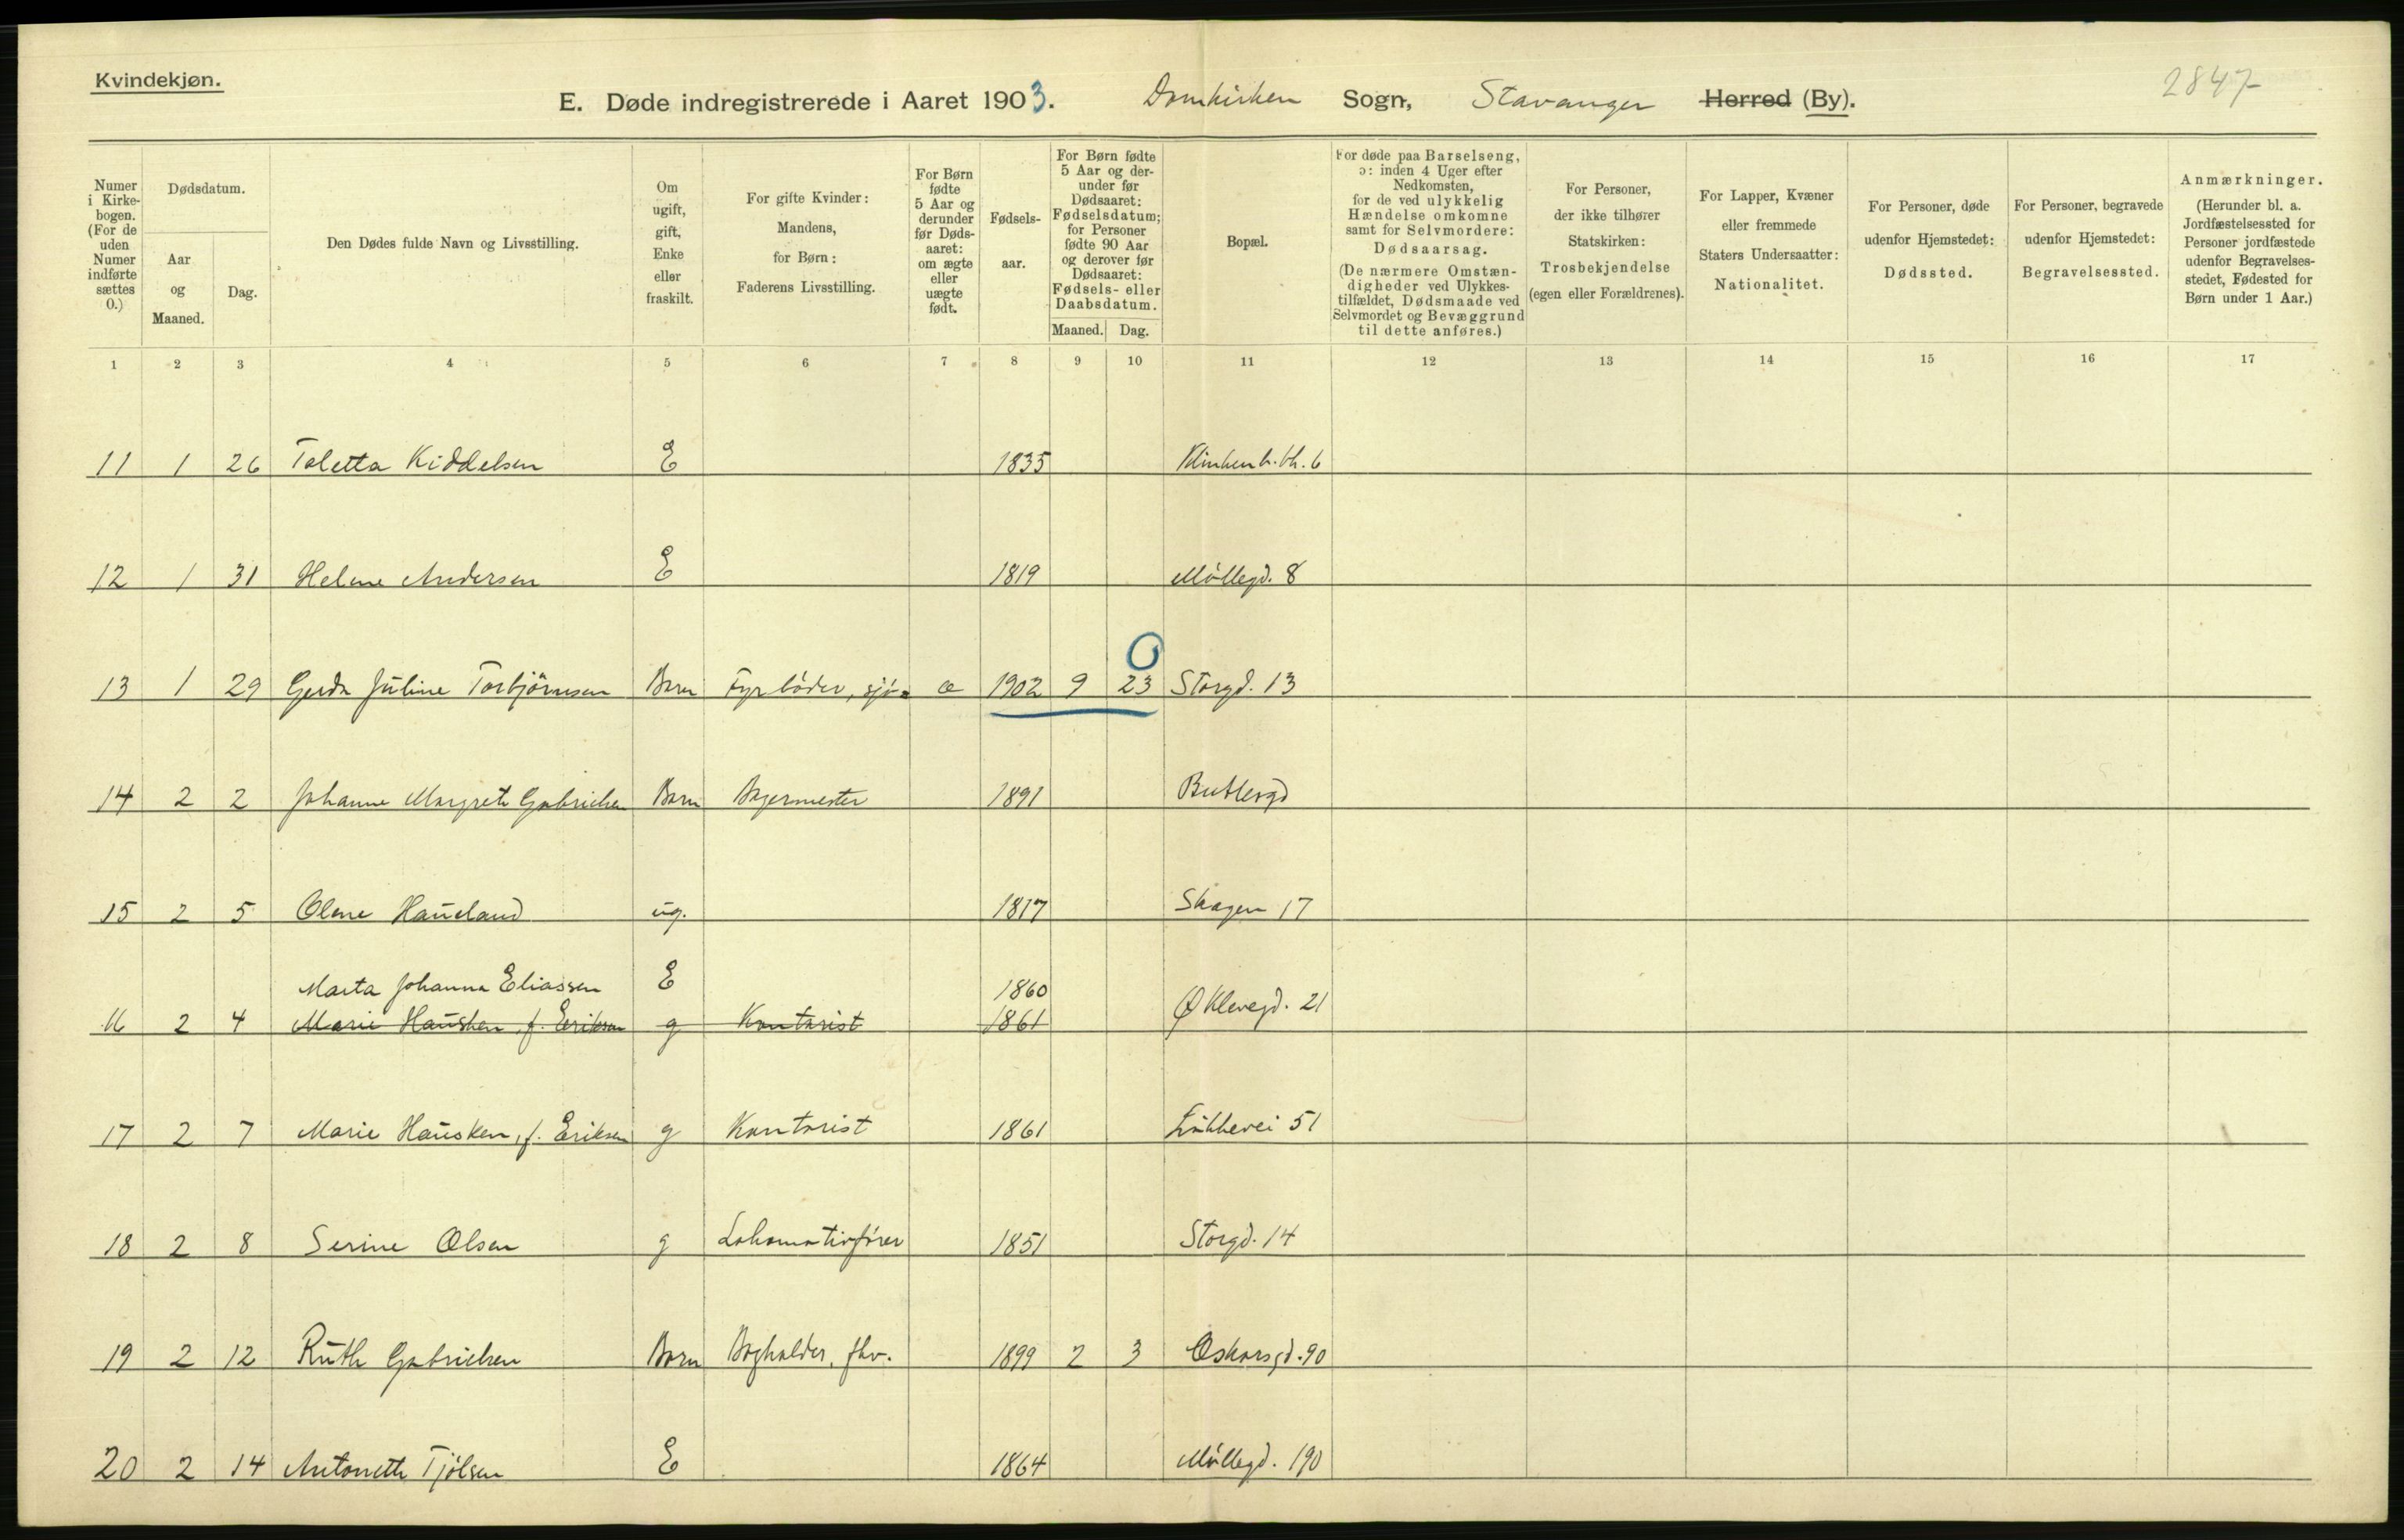 Kvindekjøn.
E. Døde indregistrerede i Aaret 1903. Domkirken Sogn, Stavanger Herred (By).
2847
Numer i Kirke-bogen. (For de uden Numer indførte sættes 0.)
Dødsdatum.
Aar og Maaned.
Dag.
Den Dødes fulde Navn og Livsstilling.
Om ugift, gift, Enke eller fraskilt.
For gifte Kvinder: Mandens, for Børn: Faderens Livsstilling.
For Børn fødte 5 Aar og derunder før Døds-aaret: om ægte eller uægte født.
Fødsels-aar.
For Børn fødte 5 Aar og der-under før Dødsaaret: Fødselsdatum; for Personer fødte 90 Aar og derover før Dødsaaret: Fødsels- eller Daabsdatum.
Maaned. Dag.
Bopæl.
For døde paa Barselseng, ɔ: inden 4 Uger efter Nedkomsten, for de ved ulykkelig Hændelse omkomne samt for Selvmordere: Dødsaarsag. (De nærmere Omstæn-digheder ved Ulykkes-tilfældet, Dødsmaade ved Selvmordet og Bevæggrund til dette anføres.)
For Personer, der ikke tilhører Statskirken: Trosbekjendelse (egen eller Forældrenes).
For Lapper, Kvæner eller fremmede Staters Undersaatter: Nationalitet.
For Personer, døde udenfor Hjemstedet: Dødssted.
For Personer, begravede udenfor Hjemstedet: Begravelsessted.
Anmærkninger. (Herunder bl. a. Jordfæstelsessted for Personer jordfæstede udenfor Begravelses-stedet, Fødested for Børn under 1 Aar.)
1 2 3 4 5 6 7 8 9 10 11 12 13 14 15 16 17
11 1 26 Taletta Kiddelsen E 1835 Klinkenb. bk. 6
12 1 31 Helene Andersen E 1819 Møllegd. 8
0
13 1 29 Gerda Juline Torbjørnsen Barn Fyrbøder, sjø. æ 1902 9 23 Storgd. 13
14 2 2 Johanne Margrete Gabrielsen Barn Bagermester 1891 Butlergd
15 2 5 Olene Haueland ug. 1817 Skagen 17
Marta Johanna Eliassen E 1860
16 2 4 Marie Hausken, f. Eriksen g Kontorist 1861 Ø Klevegd. 21
17 2 7 Marie Hausken, f. Eriksen g Kontorist 1861 Løkkevei 51
18 2 8 Serine Olsen g Lokomotivfører 1851 Storgd. 14
19 2 12 Ruth Gabrielsen Barn Bogholder, fhv. 1899 2 3 Oskarsgd. 90
20 2 14 Antonette Tjølsen E 1864 Møllegd. 190